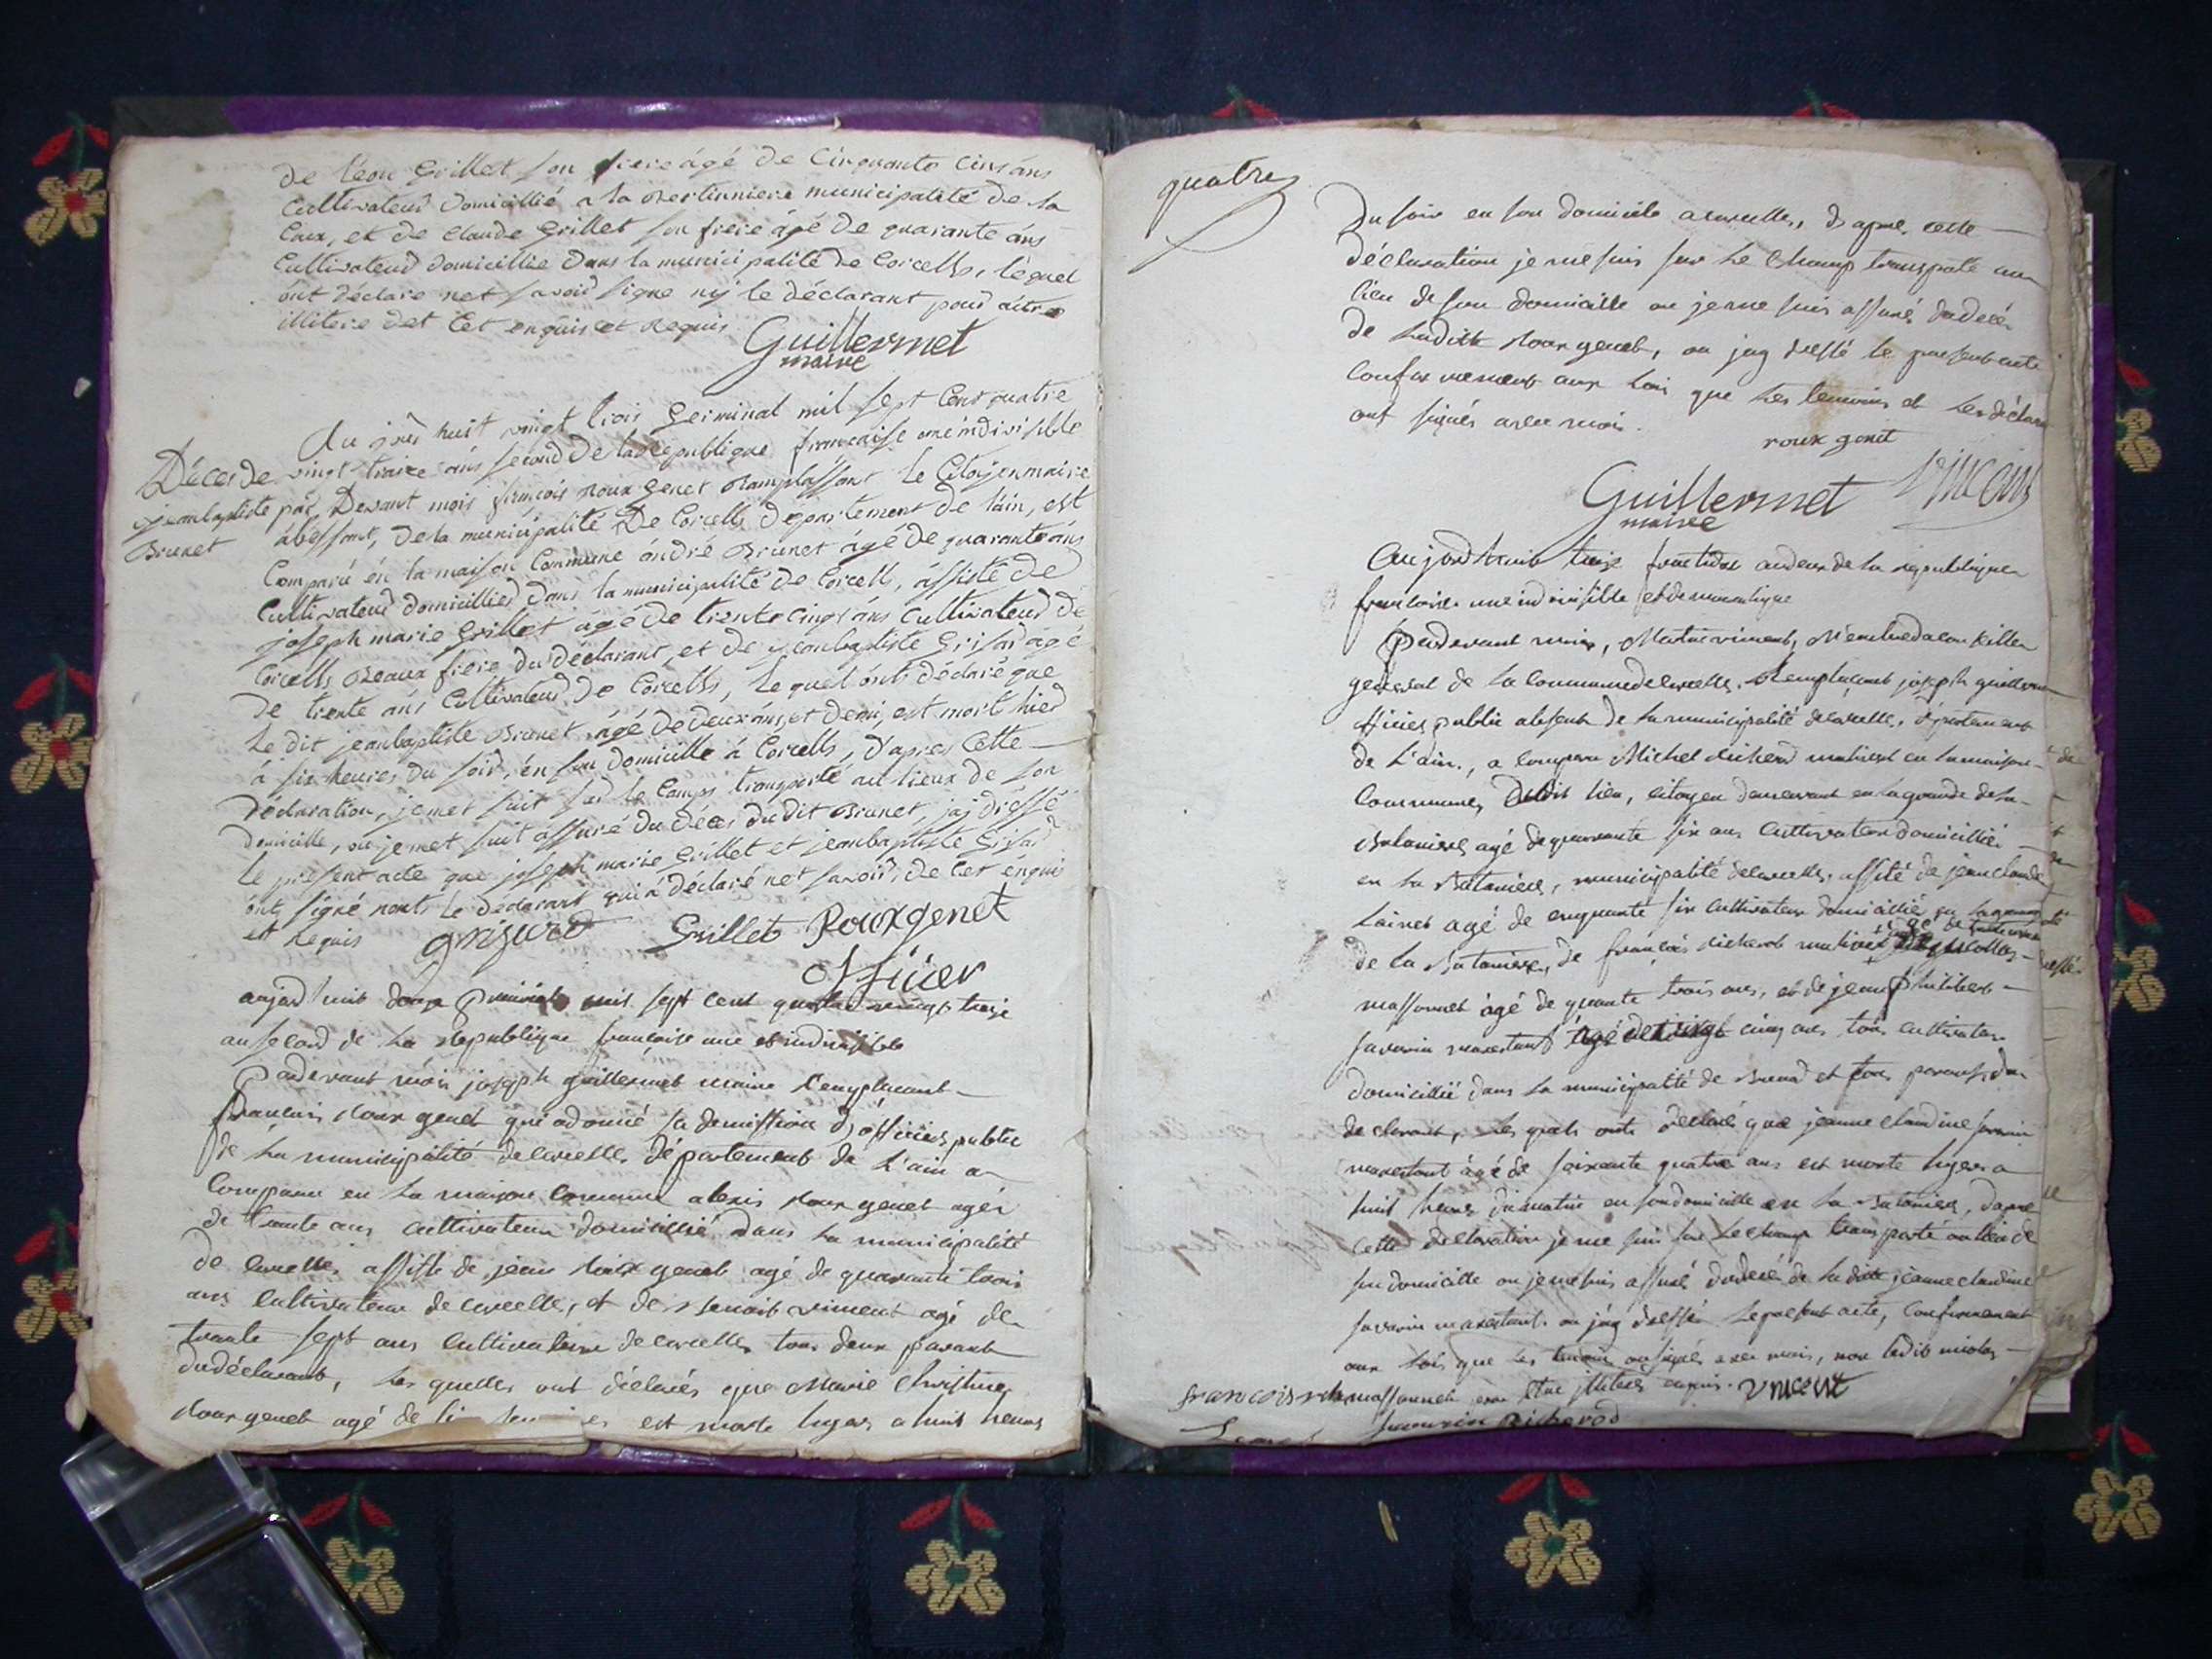 de léon Grillet son frere âgé de Cinquante Cinq áns
Cultivateur domicillié a la municipalité de la
Coux, et de claude Grillet son frere âgé de quarante áns
Cultivateur domicillié dans la municipalité de Corcells, léquel
ónt déclare net savoir signe nÿ le déclarant pour aitre
illitere det Cet enquis et Requis
Guillermet
maire
Au jour huit vingt trois Germinal mil sept Cent quatre
vingt traize áns second de la République francaise une indivisible
Déces de
jeanbaptiste
Brunet
par Devant mois francois Roux Genet Ramplassant Le Citoyen maire
ábessant, de la municipalité De Corcells département de láin, est
Comparu én la maison Commune ándré Brunet âgé de quarante áns
Cultivateur domicillier dans la municipalité de Corcells, ássisté de
joseph marie Grillet âgé de trente cinq áns Cultivateur de
Corcells Beaux frere du déclarant, et de jeanbaptiste Grisar agé
de trente áns Cultivateur de Corcells, Le quel ónt déclaré que
Le dit jeanbaptiste Brunet âgé de deux áns et demi, est mort hier
à six heures du soir, én son domicille à Corcells, d'apres Cette
déclaration, je met suit sur le Camps transporté au lieux de son
domicille, ou je met suit assuré du déces du dit Brunet, jaj dréssé
Le présent acte que joseph marie Grillet et jeanbaptiste Grisar
ónt signé nont Le déclarant qui à déclaré net savoir, de Cet énquis
et Requis
grizard Grillet Rouxgenet
officier
aujord huit mil sept cent quatre vingt treize
an second de La République francaise une et indivisible
Pardevant moin joseph guillermet maire Remplacant
francois Roux genet qui a donné sa demission d'officier public
de La municipalité de corcelle département de L'ain a
Comparu en La maison Commune alexis Roux genet agé
de trante ans cultivateur domicillié dans La municipalité
de corcelle assisté de jean Roux genet agé de quarante trois
ans Cultivateur de corcelle, et de Benoit viment agé de
trante sept ans Cultivateur de corcelle tous deux parant
du déclarant, Les quelles ont déclarés que Marie Christine
Roux genet agé de est morte hyer a huit heures
quatre
Du soir en son domicile a corcelle, d'apres cette
déclaration je me suis sur Le Champ transporté au
lieu de son domicille ou je me suis assuré du décé
de Laditte Roux genet, ou jay dressé le present acte
Conformement aux Lois que Les temoins et Les déclara
ont signés avec moi.
roux genet
Guillermet Vincent
maire
Aujourd'huit treize fructidor an deux de la république
francoise une indivisible et démocratique
Pardevant moin,
general de La Commune de corcelle Remplacant joseph guillermet
officier public absent de La municipalité de corcelle, département
de L'ain, a comparu Michel Richerod en La maison
Commune, Dudit lieu, citoyen demeurant en La grande de La
Bataniere agé de quarante six ans Cultivateur domicillié
en La Bataniere, municipalité de corcelle, assisté de jean claude
agé de cinquante six Cultivateur domicillié en
de La Bataniere, de francois Richerod
massonnet âgé de quarante trois ans, et de jean philibert
savarin marestant âgé de vingt cinq ans tous cultivateur
domicillié dans La municipalité de Brenod et tous parans du
declarant, Les quels ont déclaré que jeanne claudine savarin
marestant âgé de soixante quatre ans est morte hyer a
huit heures du matin en son domicille en La Bataniere, d'apres
cette déclaration je me suis sur Le champ transporté au lieu de
son domicille ou je me suis assuré du decé de La ditte jeanne claudine
savarin marestant ou jay dressé Le present acte, conformement
aux Lois que Les temoin on signés avec moi, non Ledit nicolas
massonnet pour etre illiteré enquis. Vincent
francois
savarin Richerod